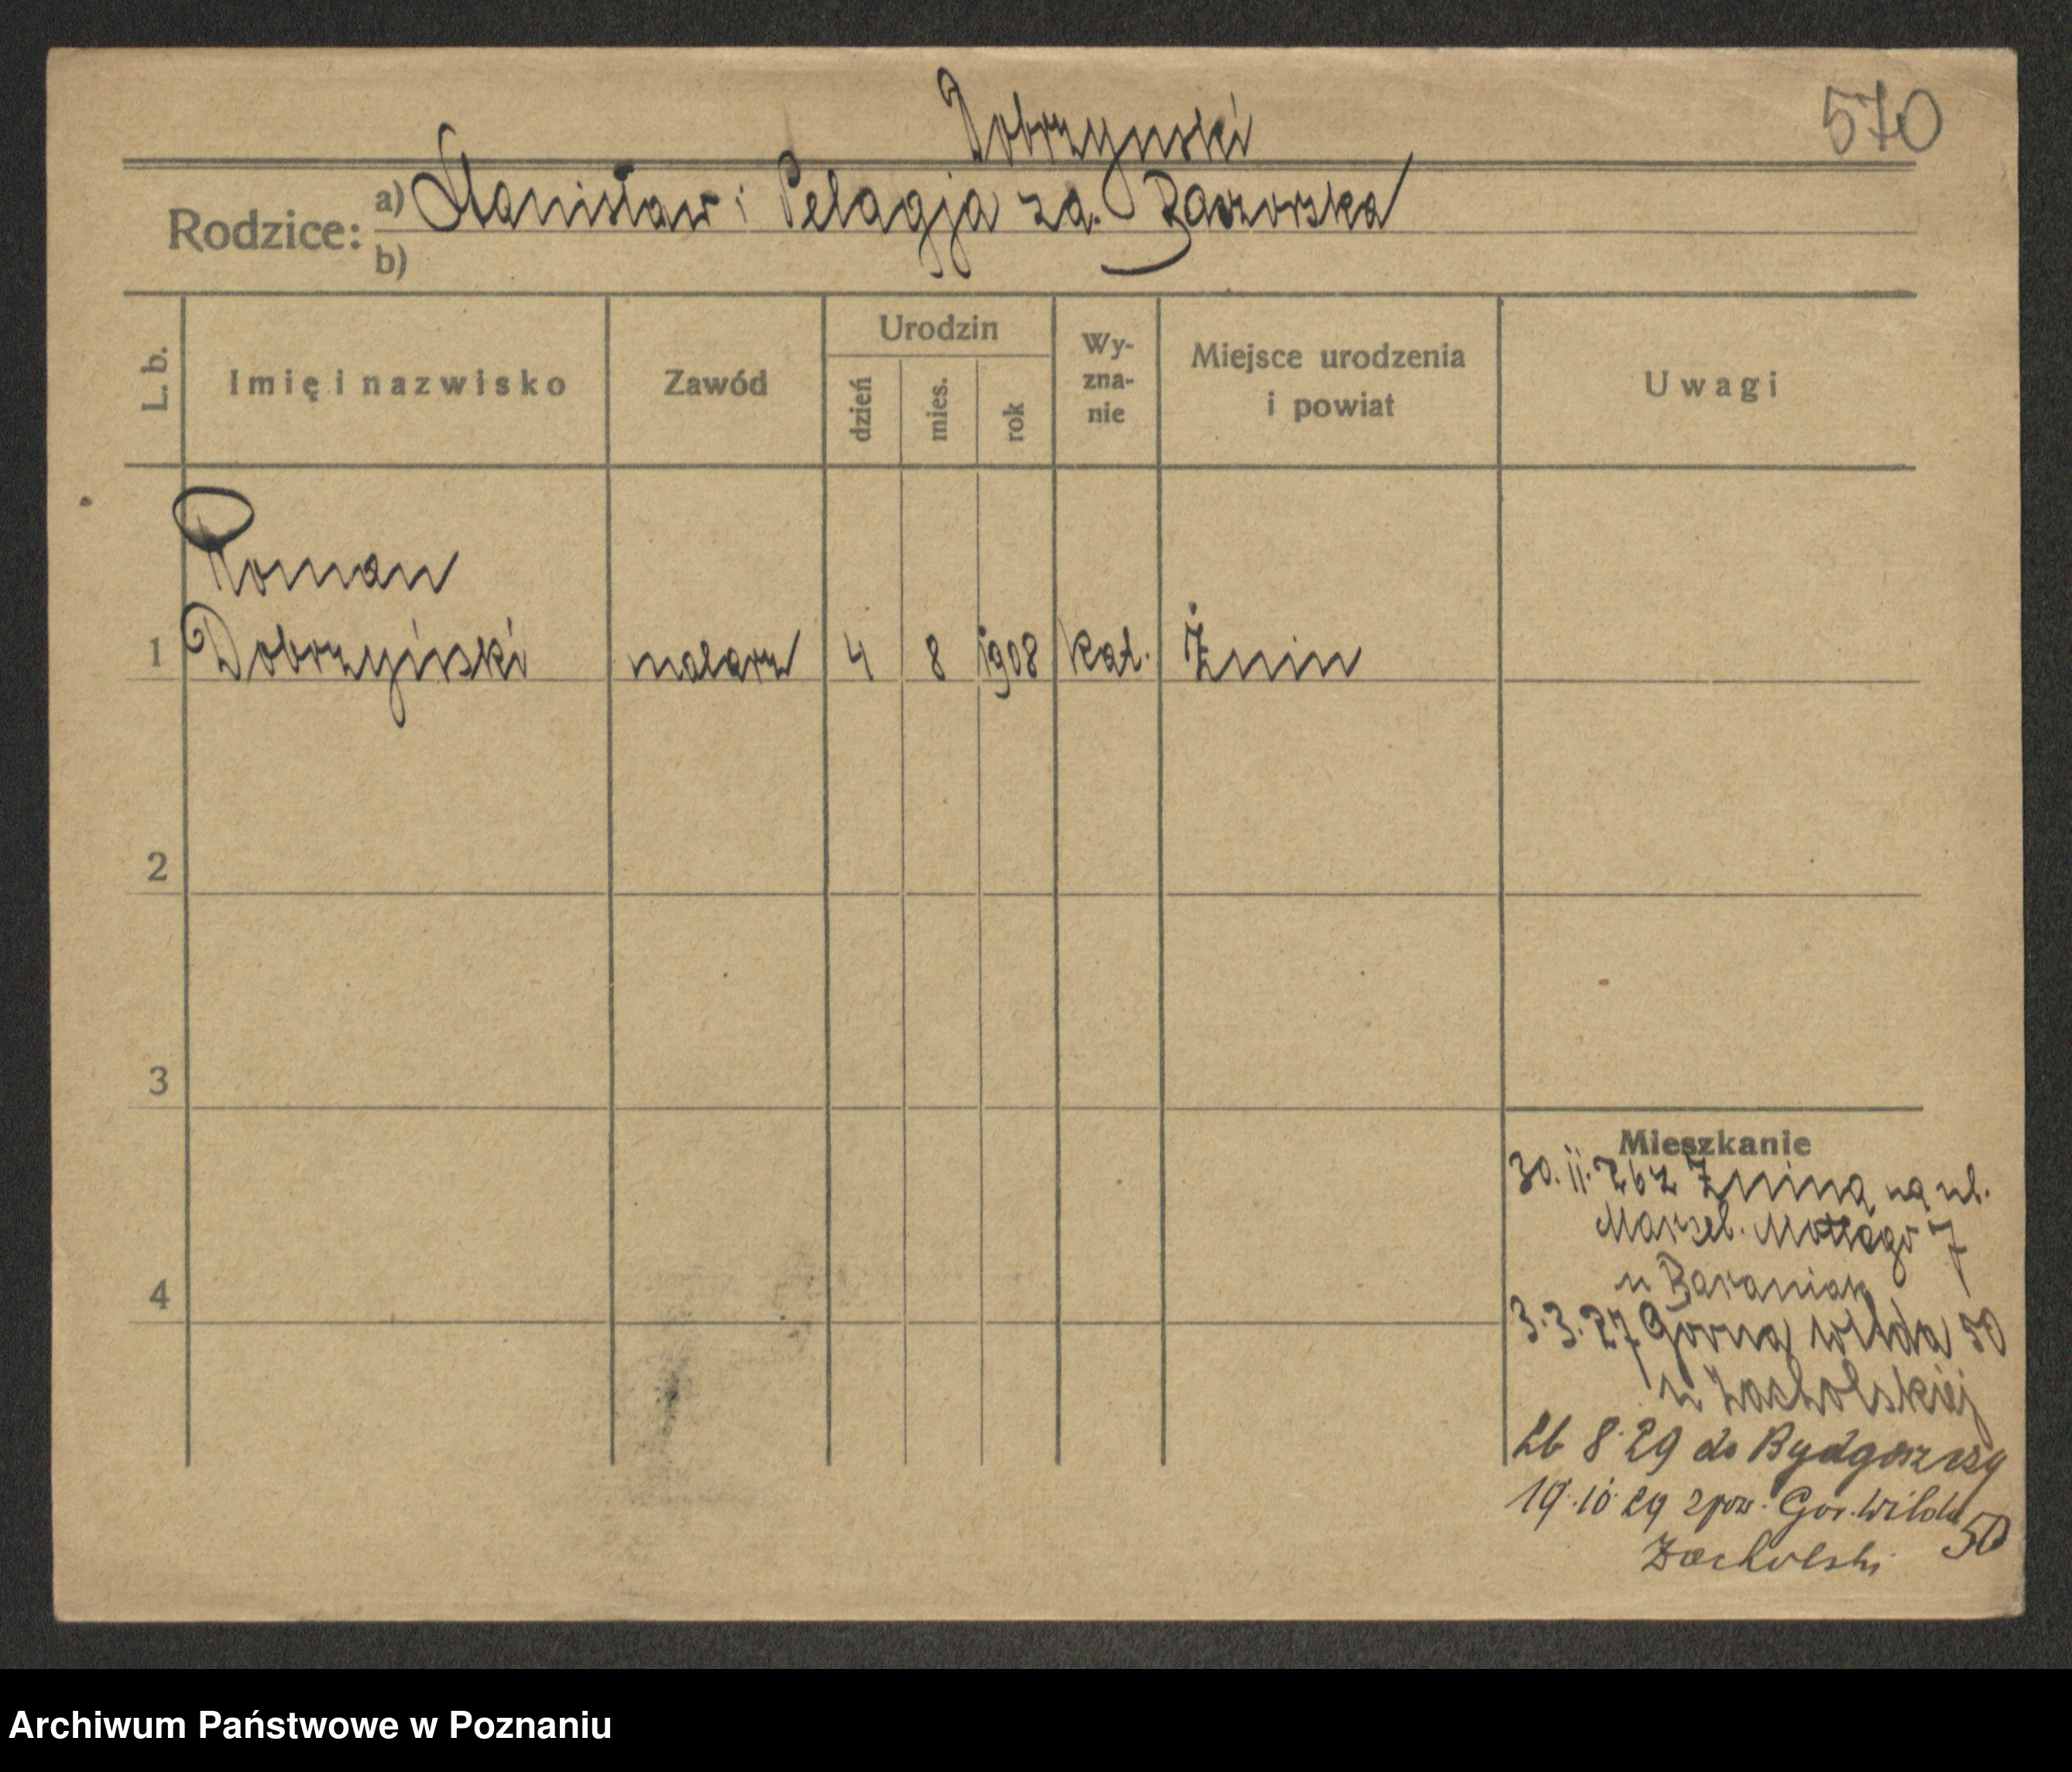 570
Dobrzynski
Rodzice: a) Stanisław i Pelagja za.
b)
L. b. Imię i nazwisko Zawód Urodzin dzień mies. rok Wy-zna-nie Miejsce urodzenia i powiat Uwagi
Roman
1 Dobrzyński malarz 4 8 1908 kat. Żnin
2
3
Mieszkanie
30.11.26 z Żnina na ul.
Marsel. Mottego 7
4
u Baraniak
3.3.27 Górna Wilda 50
u Zacholskiej
26 8 29 do Bydgoszczy
19.10 29 zpow. Gor. Wilda 50
Zacholski
Archiwum Państwowe w Poznaniu